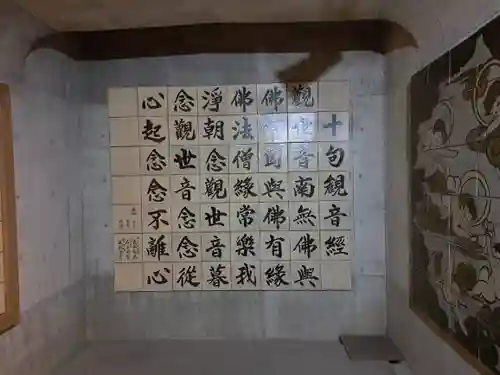 十句観音經
觀世音南無佛與
佛有因與佛有緣
佛法僧緣常樂我
淨朝念觀世音暮
念觀世音念念從
心起念念不離心